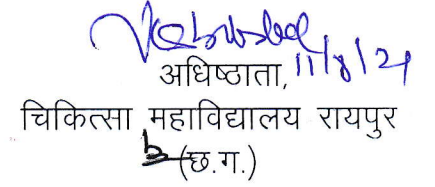 11/8/21
अधिष्ठाता,
चिकित्सा महाविद्यालय रायपुर
(छ.ग.)